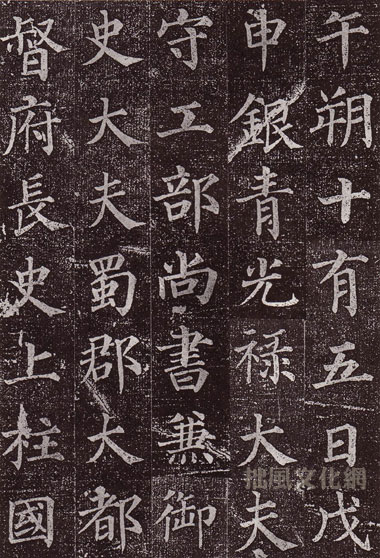 午朔十有五日戊
申銀青光禄大夫
守工部尚書兼御
史大夫蜀郡大都
督府長史上柱國
拙風文化網